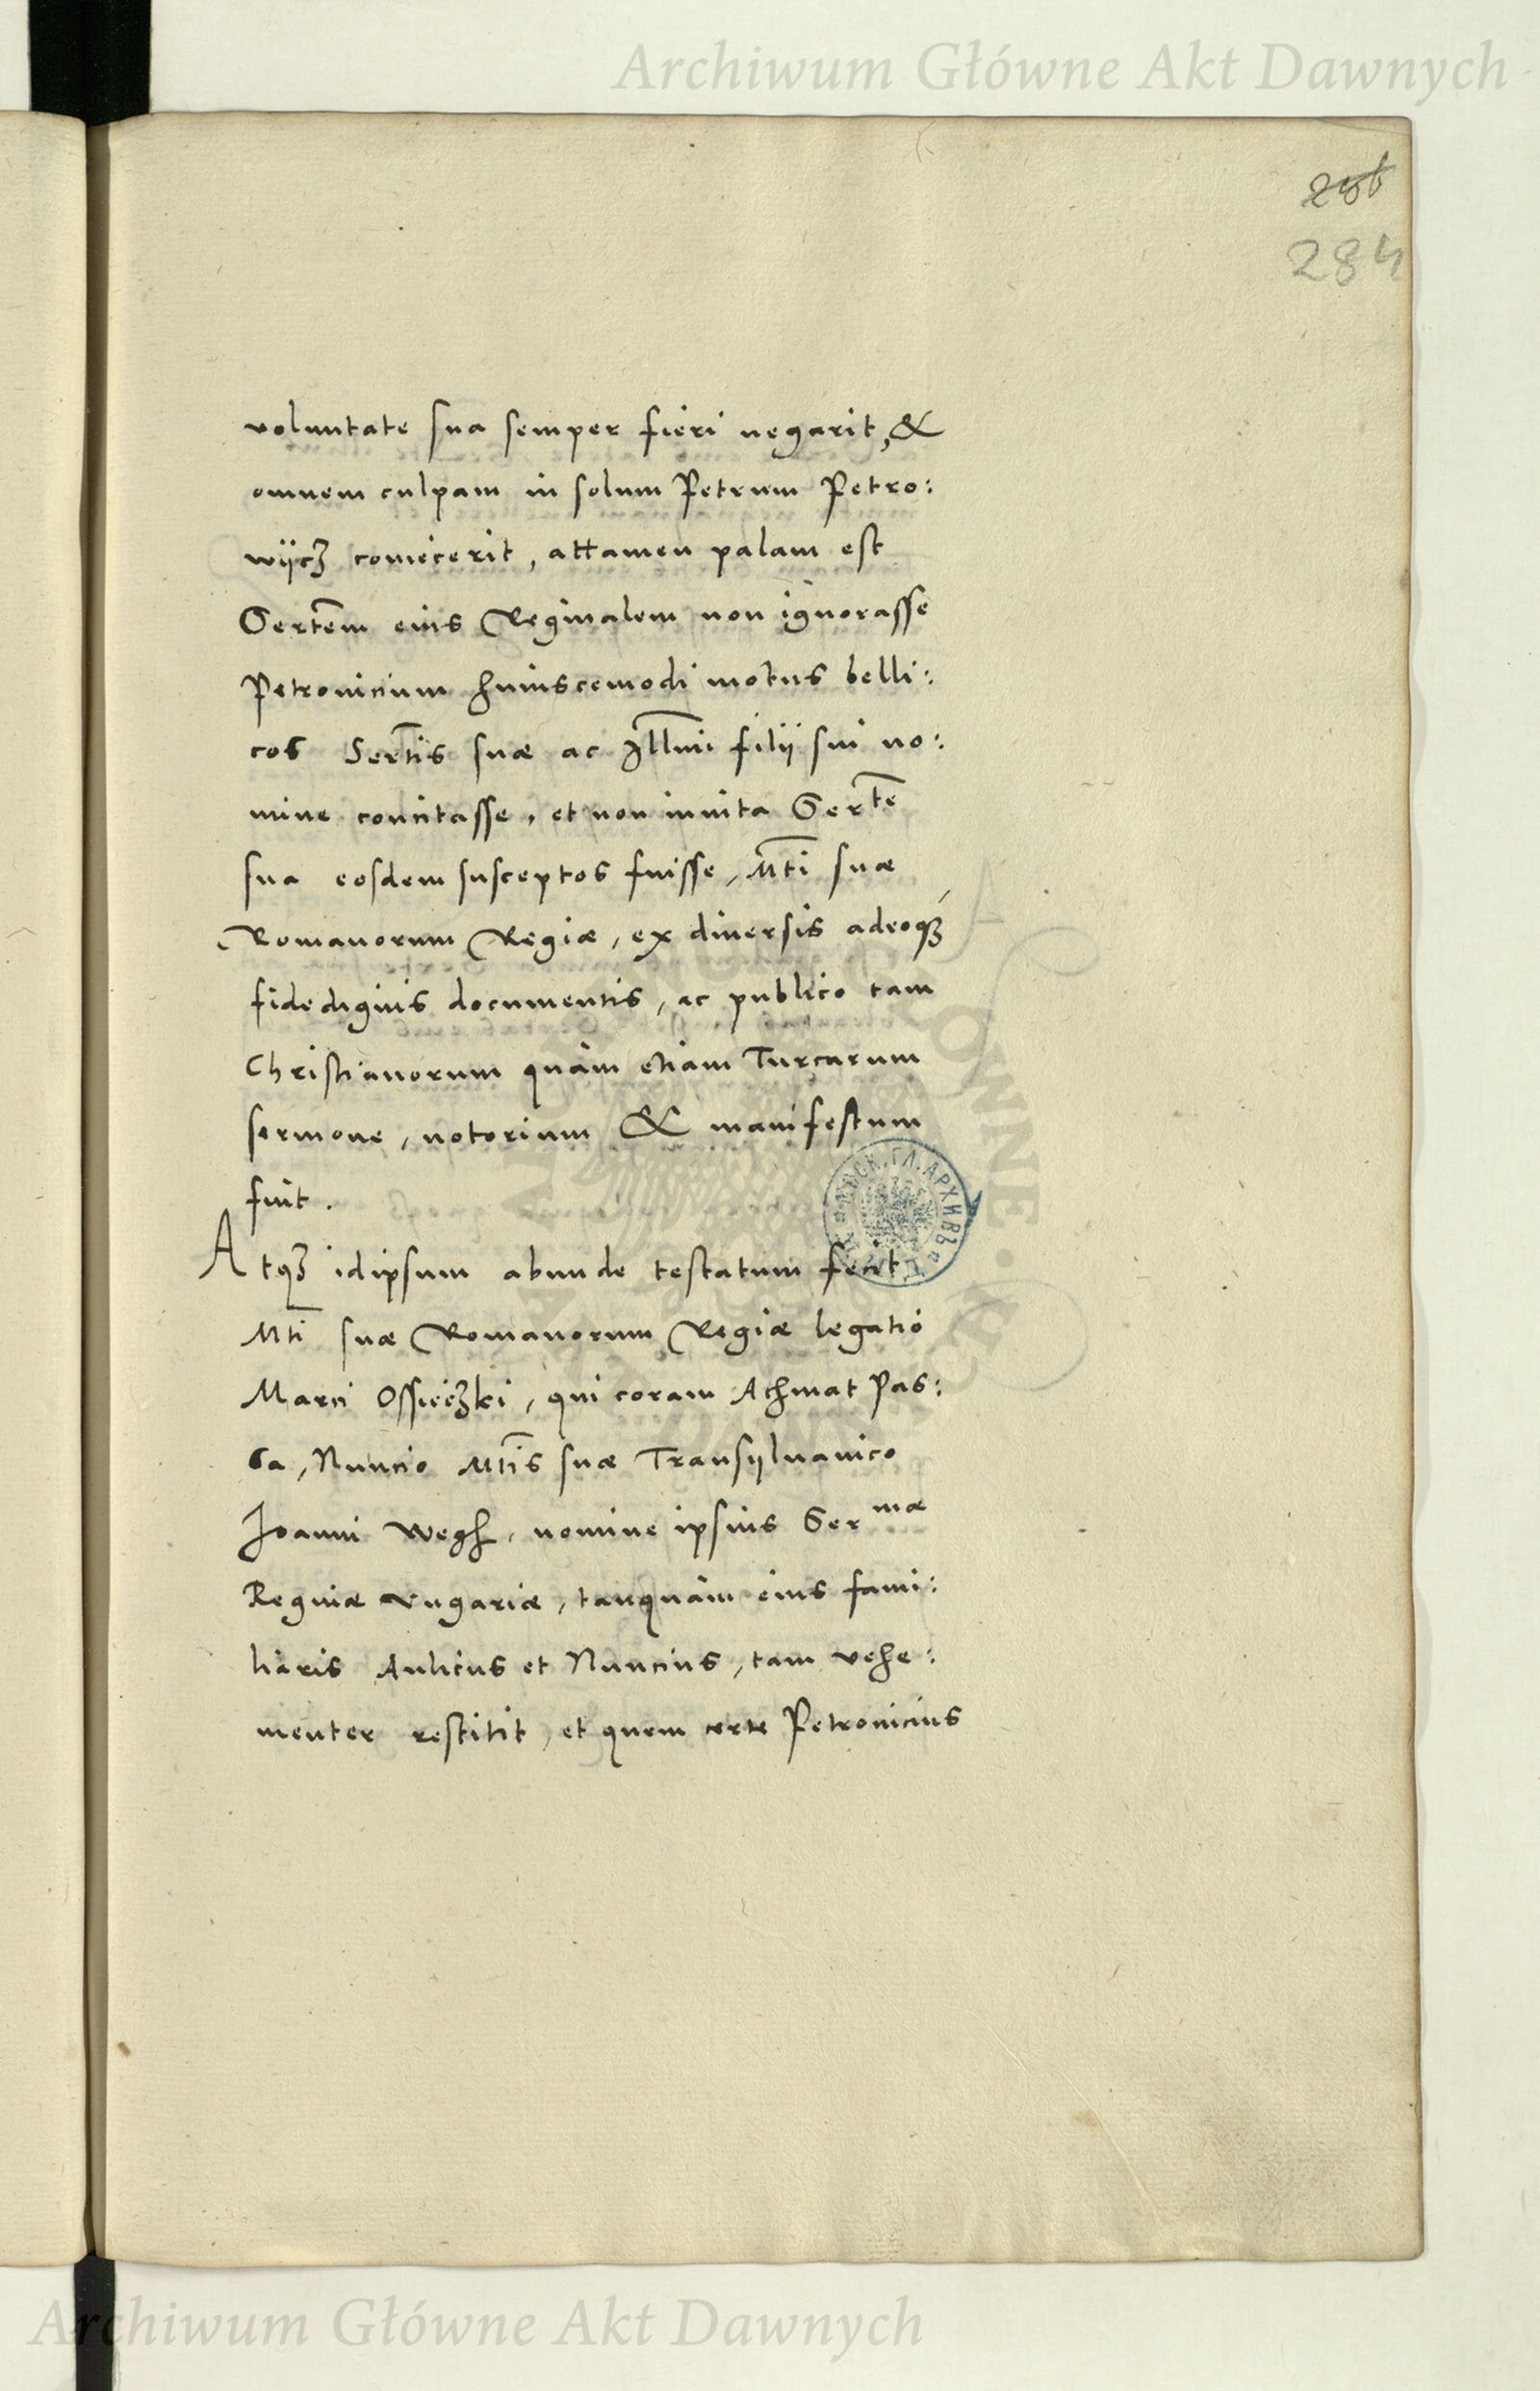 Archiwum Główne Akt Dawnych
284
voluntate sua semper fieri negarit, &
omnem culpam in solum Petrum Petro:
wijcz coniecerit, attamen palam est
Sertem eius Reginalem non ignorasse
Petrovicium huiuscemodi motus belli:
cos Sertis suæ ac Illmi filij sui no:
mine concitasse, et non invita Serte
sua eosdem susceptos fuisse, Mti suæ
Romanorum Regiæ, ex diversis adeoqz
fidedignis documentis, ac publico tam
Christianorum quàm etiam Turcarum
sermone, notorium & manifestum
fuit.
Atqz idipsum abunde testatum fecit
Mti suæ Romanorum Regiæ legatio
Marci Ossieczki, qui coram Achmat Pas:
sa, Nuncio Mtis suæ Transylvanico
Joanni Wegh, nomine ipsius Sermæ
Reginæ Vngariæ, tanquàm eius fami:
liaris Aulicus et Nuncius, tam vehe:
menter restitit, et quem certe Petrovicius
Archiwum Główne Akt Dawnych